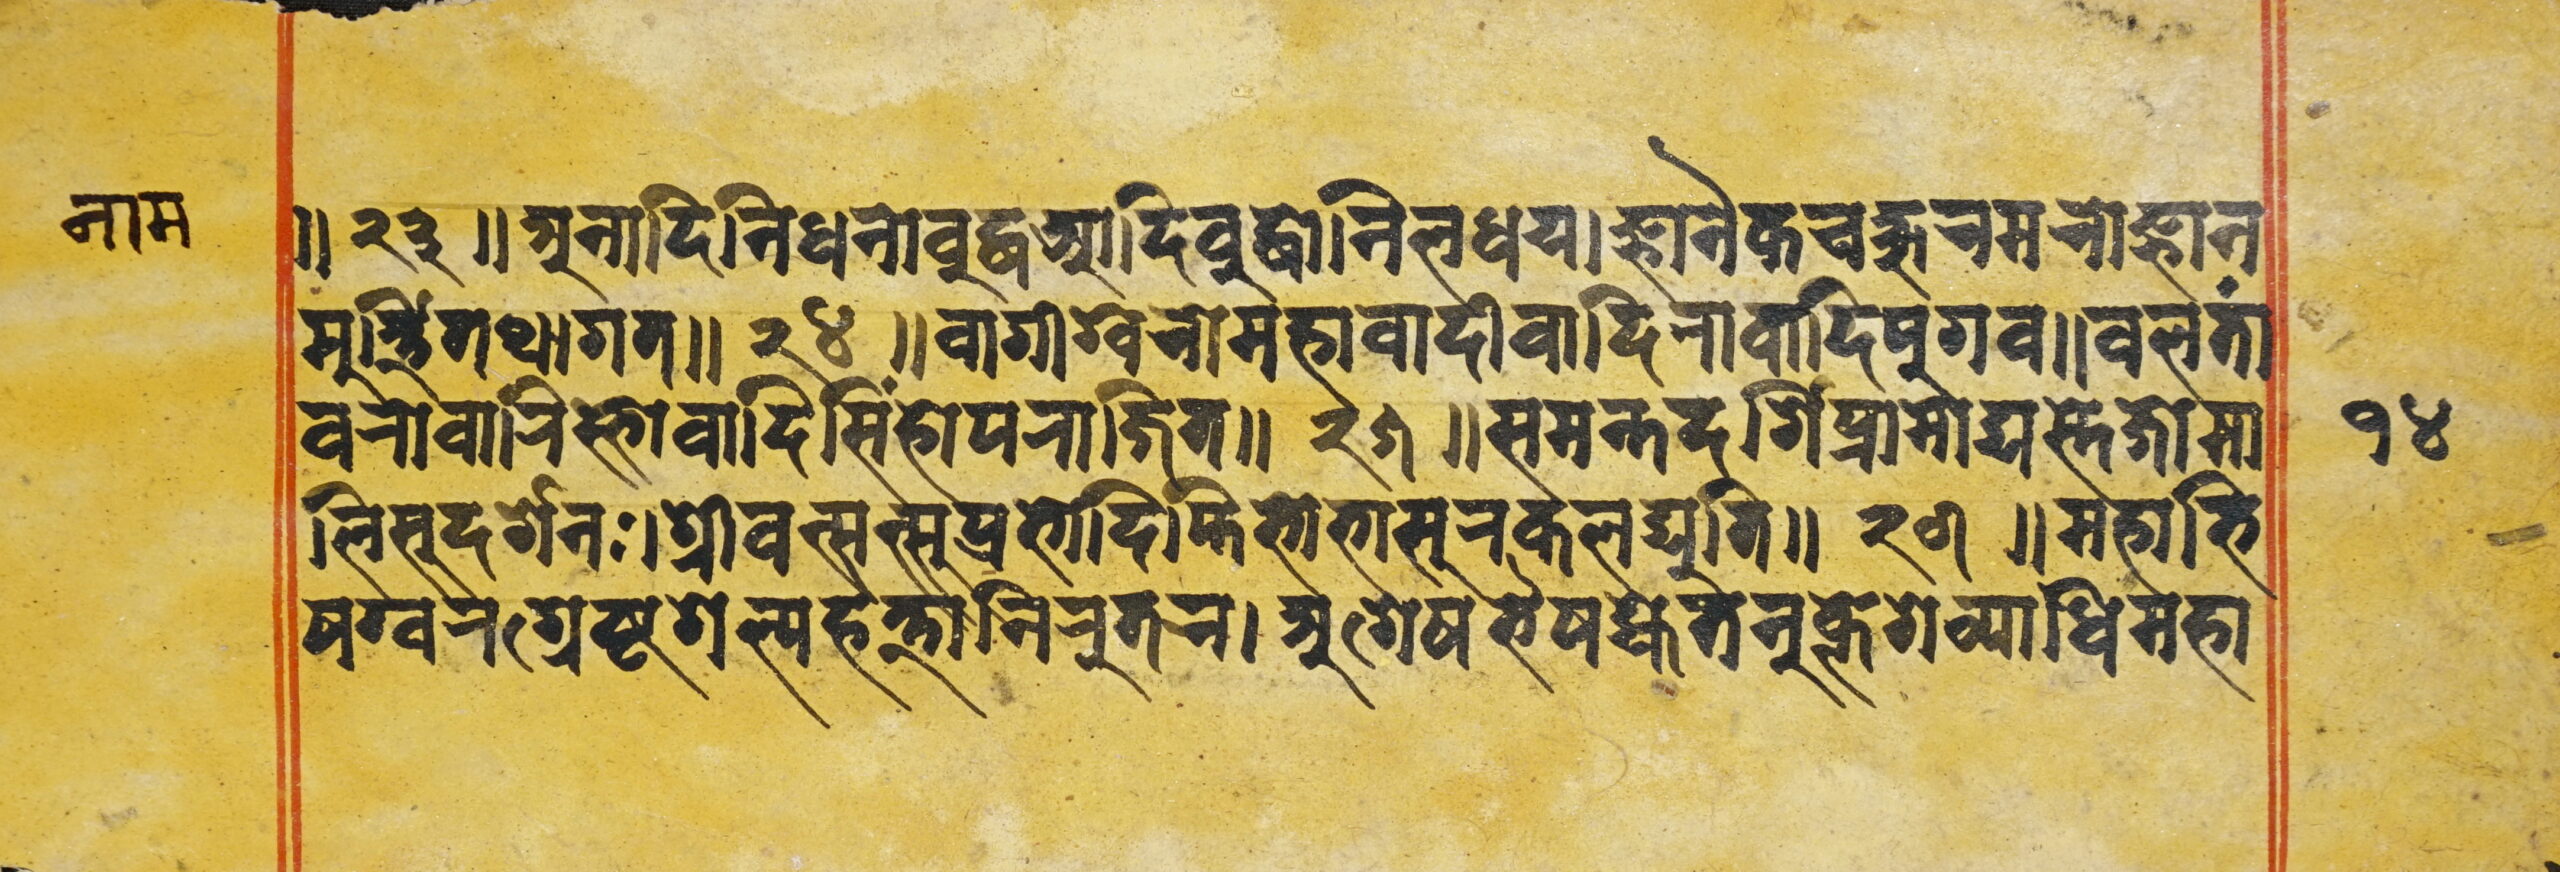 नाम
॥ २३ ॥ अनादिनिधनोवुद्धआदिवुद्धोनिलधय। ज्ञानैकचक्षुरमरोज्ञान
मुर्त्तितथागत॥ २४ ॥ वागीश्वरोमहावादीवादिनावादिपुगव॥ वलतां
वरोवारिस्थोवादिसिंहोपराजित॥ २५ ॥ समन्तदर्शिप्रामोद्यस्तेजोमा
लिसुदर्शनः। श्रीवत्सत्सुप्रभोदिप्तिभोभासुरकलद्युति॥ २६ ॥ महाभि
षग्वरश्रेष्टशेल्यहर्त्तानिरुतर। अशेषभैषज्येतरुक्लेशेव्याधिमहा
१४